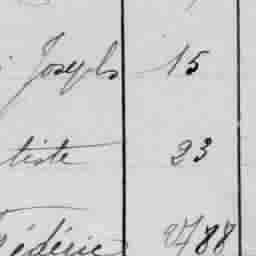 Joseph 15
tiste 23
édéric 88